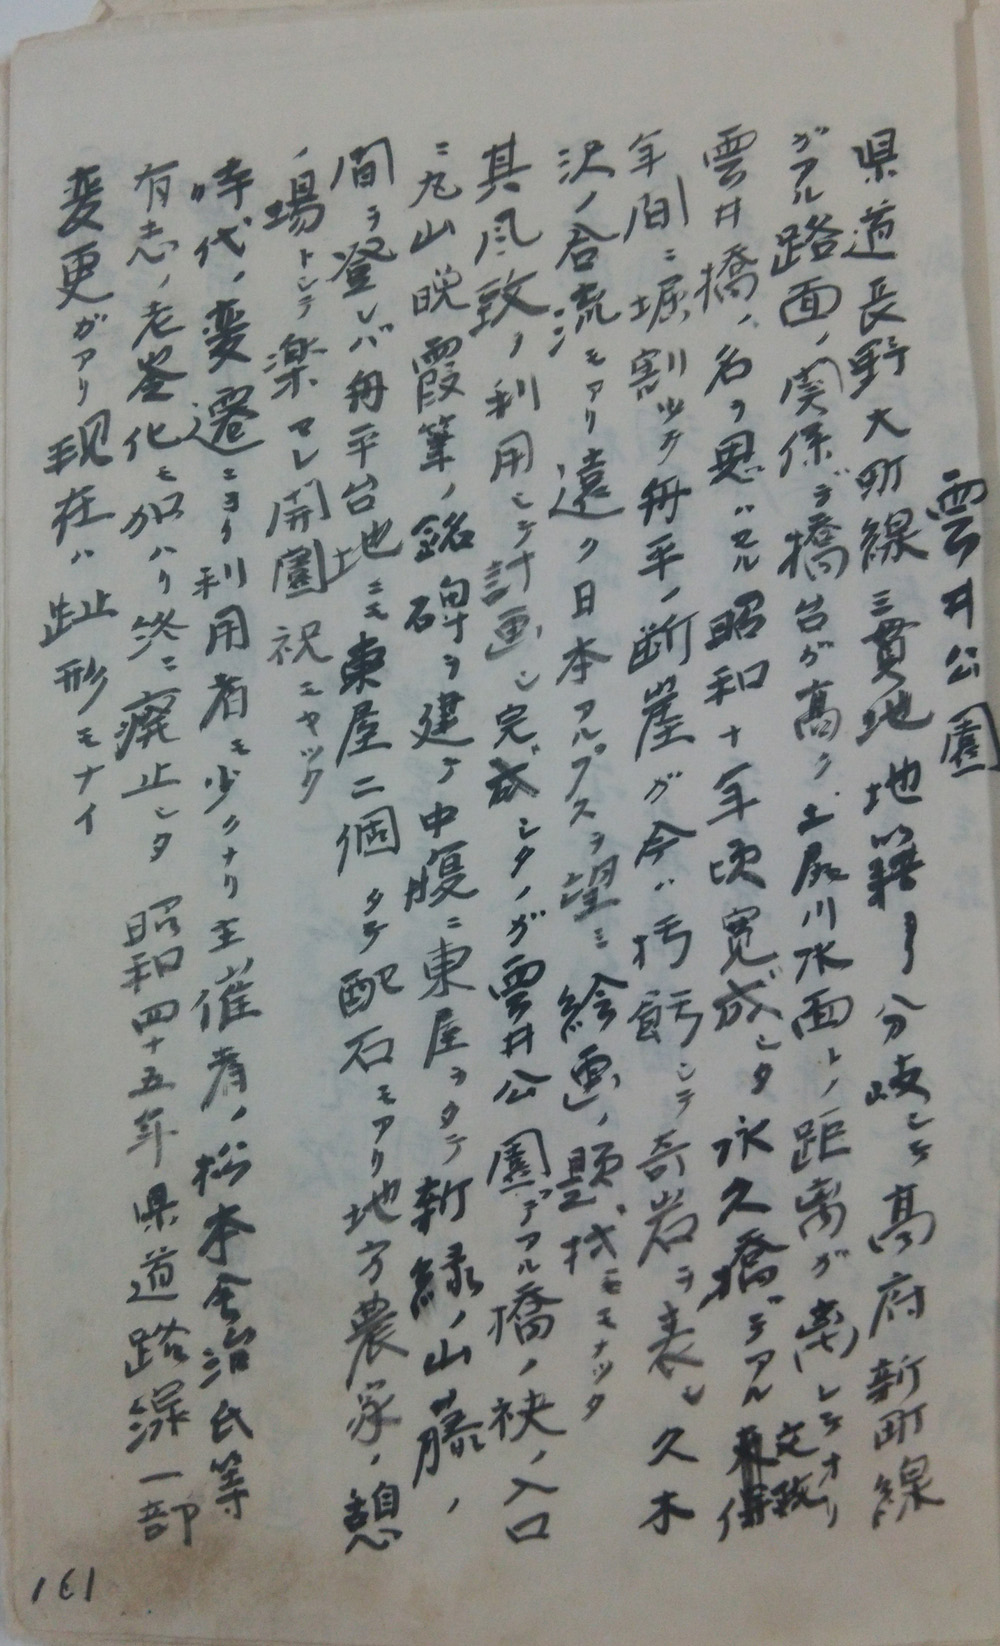 雲井公園
県道長野大町線三貫地地籍ヨリ分岐シテ高府新町線
ガアル路面ノ関係デ橋台ガ高ク土尻川水面トノ距離ガ高レテオリ
雲井橋ノ名ヲ思ハセル昭和十年頃完成シタ永久橋デアル
年間ニ堀割ツタ舟平ノ断崖ガ今ハ朽シテ奇岩ヲ表シ久木
沢ノ合流モアリ遠ク日本アルプスヲ望ミ絵画ノ題材ニモナツタ
其風致ノ利用シテ計画シ完成シタノガ雲井公園デアル橋ノ袂ノ入口
ニ丸山晩霞筆ノ銘碑ヲ建テ中腹ニ東屋ヲタテ新緑ノ山藤ノ
間ヲ登レバ舟平台地ニモ東屋二個タテ配石モアリ地方農家ノ憩
ノ場トシテ楽マレ開園祝ニヤツタ
時代ノ変遷ニヨリ利用者モ少クナリ主催者ノ松本舎治氏等
有志ノ老令化モ加ハリ終ニ廃止シタ昭和四十五年県道路線一部
変更ガアリ現在ハ趾形モナイ
161